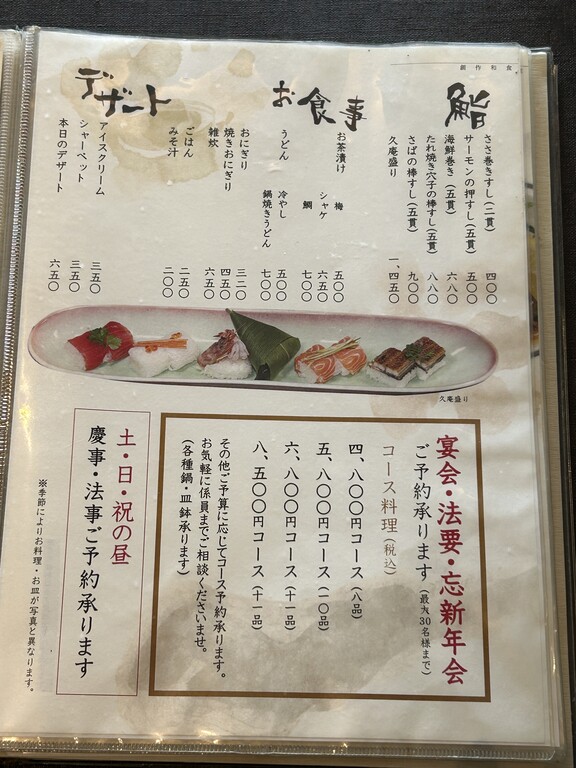 創作和食
鮨
ささ巻きすし（二貫） 四〇〇
サーモンの押すし（五貫） 五〇〇
海鮮巻き（五貫） 六八〇
たれ焼き穴子の棒すし（五貫） 八八〇
さばの棒すし（五貫） 九〇〇
久庵盛り 一、四五〇
お食事
お茶漬け 梅 五〇〇
シャケ 六五〇
鯛 七〇〇
うどん 冷やし 五〇〇
鍋焼きうどん 七〇〇
おにぎり 三二〇
焼きおにぎり 四五〇
雑炊 六五〇
ごはん 二五〇
みそ汁 二〇〇
デザート
アイスクリーム 三五〇
シャーベット 三五〇
本日のデザート 六五〇
久庵盛り
宴会・法要・忘新年会
ご予約承ります（最大30名様まで）
コース料理（税込）
四、八〇〇円コース（八品）
五、八〇〇円コース（一〇品）
六、八〇〇円コース（十一品）
八、五〇〇円コース（十一品）
その他ご予算に応じてコース予約承ります。
お気軽に係員までご相談くださいませ。
（各種鍋・皿鉢承ります）
土・日・祝の昼
慶事・法事ご予約承ります
※季節によりお料理・お皿が写真と異なります。